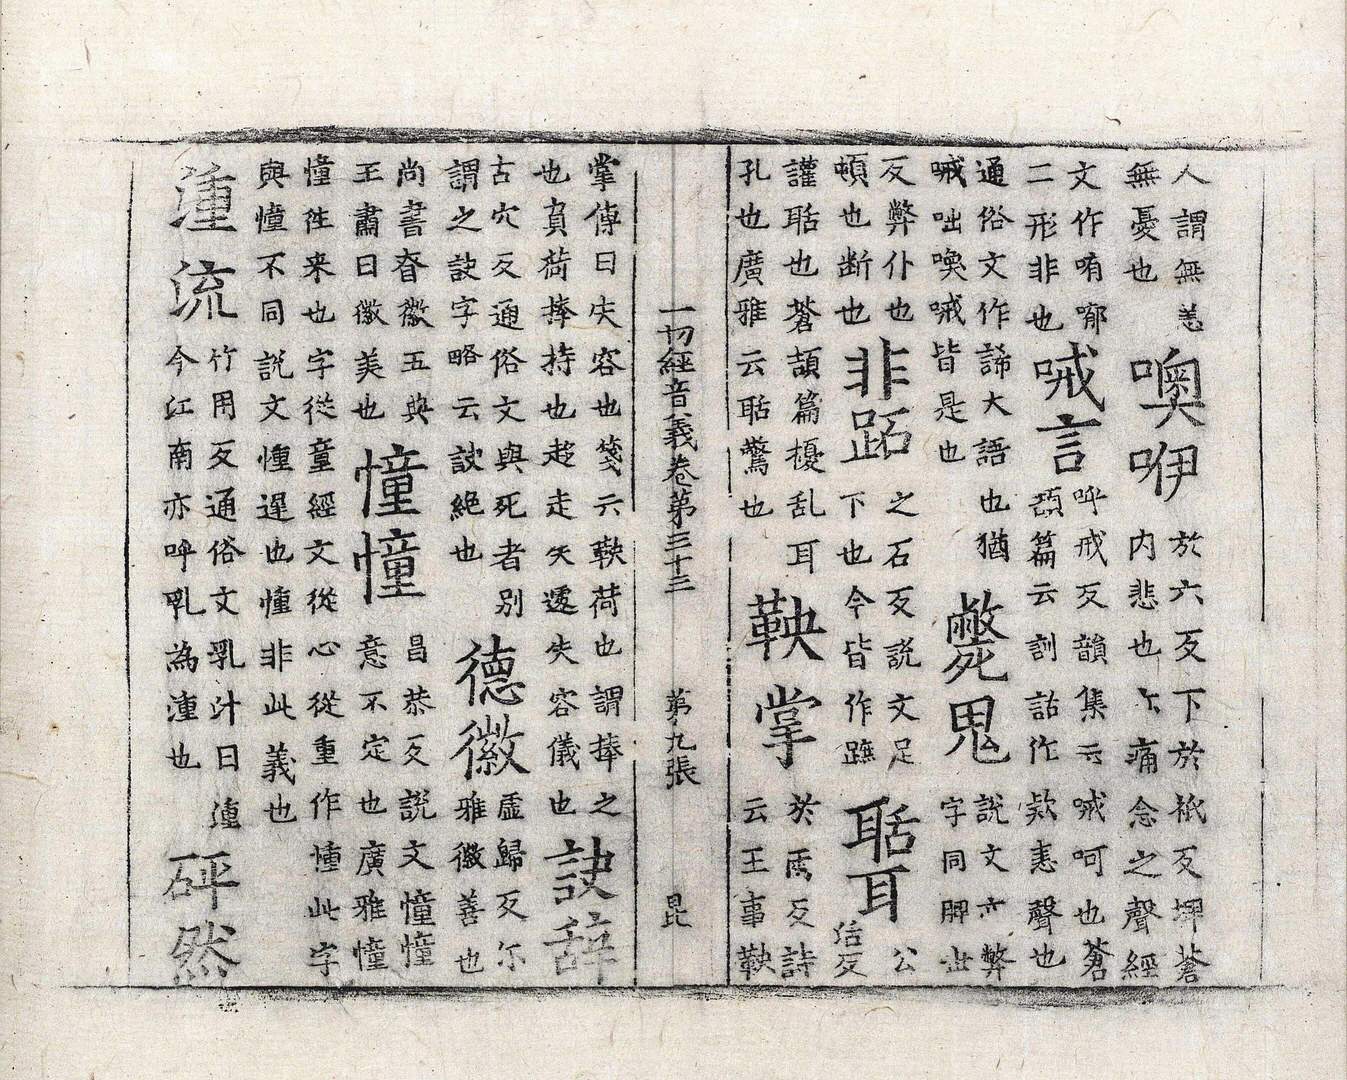 人謂無恙無憂也噢咿於六反下於祇反埤蒼内悲也尒痛念之聲經
文作唷喐二形非也㖑言呼戒反韻集云㖑呵也蒼頡篇云訓詁作欬恚聲也
通俗文作諦大語也猶㖑咄喚㖑皆是也斃鬼說文亦弊字同脾世
反弊仆也頓也断也非跖之石反說文足下也今皆作蹠聒耳公活反
讙聒也蒼頡篇擾乱耳孔也廣雅云聒驚也鞅掌於兩反詩云王事鞅
一切經音義卷第三十二 第九張 昆
掌傳曰失容也箋云鞅荷也謂捧之也負荷捧持也趍走失遽失容儀也訣辞
古穴反通俗文與死者別謂之訣字略云訣絶也德徽虛歸反尒雅徽善也
尚書昚徽五典王肅曰徽美也憧憧昌恭反說文憧憧意不定也廣雅憧
憧往来也字從童經文從心從重作㣫此字與憧不同說文㣫遲也㣫非此義也
湩流竹用反通俗文乳汁曰湩今江南亦呼乳為湩也砰然